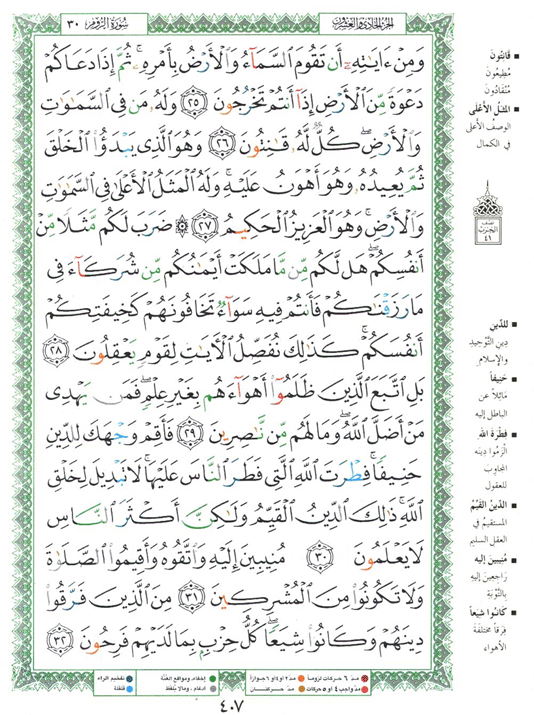 سُورَةُ الرُّومِ ٣٠
الجزء الحادي والعشرون
وَمِنْ ءَايَٰتِهِۦٓ أَن تَقُومَ ٱلسَّمَآءُ وَٱلْأَرْضُ بِأَمْرِهِۦ ۚ ثُمَّ إِذَا دَعَاكُمْ
دَعْوَةً مِّنَ ٱلْأَرْضِ إِذَآ أَنتُمْ تَخْرُجُونَ ٢٥ وَلَهُۥ مَن فِى ٱلسَّمَٰوَٰتِ
وَٱلْأَرْضِ ۖ كُلٌّ لَّهُۥ قَٰنِتُونَ ٢٦ وَهُوَ ٱلَّذِى يَبْدَؤُا۟ ٱلْخَلْقَ
ثُمَّ يُعِيدُهُۥ وَهُوَ أَهْوَنُ عَلَيْهِ ۚ وَلَهُ ٱلْمَثَلُ ٱلْأَعْلَىٰ فِى ٱلسَّمَٰوَٰتِ
وَٱلْأَرْضِ ۚ وَهُوَ ٱلْعَزِيزُ ٱلْحَكِيمُ ٢٧ ۞ ضَرَبَ لَكُم مَّثَلًا مِّنْ
أَنفُسِكُمْ ۖ هَل لَّكُم مِّن مَّا مَلَكَتْ أَيْمَٰنُكُم مِّن شُرَكَآءَ فِى
مَا رَزَقْنَٰكُمْ فَأَنتُمْ فِيهِ سَوَآءٌ تَخَافُونَهُمْ كَخِيفَتِكُمْ
أَنفُسَكُمْ ۚ كَذَٰلِكَ نُفَصِّلُ ٱلْءَايَٰتِ لِقَوْمٍ يَعْقِلُونَ ٢٨
بَلِ ٱتَّبَعَ ٱلَّذِينَ ظَلَمُوٓا۟ أَهْوَآءَهُم بِغَيْرِ عِلْمٍ ۖ فَمَن يَهْدِى
مَنْ أَضَلَّ ٱللَّهُ ۖ وَمَا لَهُم مِّن نَّٰصِرِينَ ٢٩ فَأَقِمْ وَجْهَكَ لِلدِّينِ
حَنِيفًا ۚ فِطْرَتَ ٱللَّهِ ٱلَّتِى فَطَرَ ٱلنَّاسَ عَلَيْهَا ۚ لَا تَبْدِيلَ لِخَلْقِ
ٱللَّهِ ۚ ذَٰلِكَ ٱلدِّينُ ٱلْقَيِّمُ وَلَٰكِنَّ أَكْثَرَ ٱلنَّاسِ
لَا يَعْلَمُونَ ٣٠ ۞ مُنِيبِينَ إِلَيْهِ وَٱتَّقُوهُ وَأَقِيمُوا۟ ٱلصَّلَوٰةَ
وَلَا تَكُونُوا۟ مِنَ ٱلْمُشْرِكِينَ ٣١ مِنَ ٱلَّذِينَ فَرَّقُوا۟
دِينَهُمْ وَكَانُوا۟ شِيَعًا ۖ كُلُّ حِزْبٍۭ بِمَا لَدَيْهِمْ فَرِحُونَ ٣٢
■ قَانِتُونَ
مُطِيعُونَ
مُنْقَادُونَ
■ المَثَلُ الأَعْلَى
الوصف الأعلى
في الكمال
نصف
الحزب
٤١
■ للدِّين
دِينِ التَّوْحِيدِ
والإسلام
■ حَنِيفاً
مَائِلاً عن
الباطل إليه
■ فِطْرَةَ الله
الْزَمُوا دِينَه
المجاوِبَ
للعقول
■ الدِّينُ القَيِّمُ
المستقيمُ في
العقل السليم
■ مُنِيبِينَ إليه
رَاجعين إليه
بالتَّوْبَةِ
■ كَانُوا شِيَعاً
فِرَقاً مختلفة
الأهواء
مدّ ٦ حركات لزوماً
مدّ ٢ أو ٤ أو ٦ جوازاً
إخفاء، ومواقع الغُنَّة
تفخيم الراء
مدّ واجب ٤ أو ٥ حركات
مدّ حركتان
ادغام، ومالا يُلفظ
قلقلة
٤٠٧